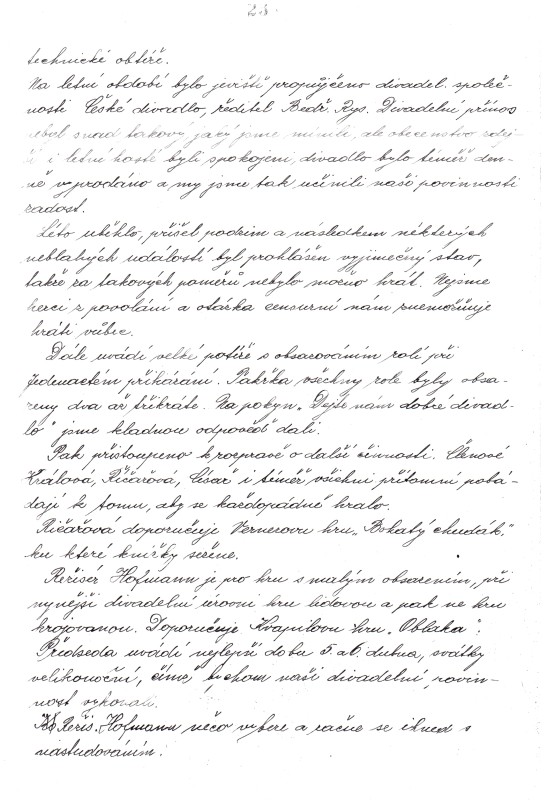 28.
technické obtíže.
Na letní období bylo jeviště propůjčeno divadel. společ-
nosti České divadlo, ředitel Bedř. Rys. Divadelní přínos
nebyl snad takový, jaký jsme mínili, ale obecenstvo zdej-
ší i letní hosté byli spokojeni, divadlo bylo téměř den-
ně vyprodáno a my jsme tak učinili naší povinnosti
zadost.
Léto uběhlo, přišel podzim a následkem některých
neblahých událostí byl prohlášen vyjimečný stav,
takže za takových poměrů nebylo možno hrát. Nejsme
herci z povolání a otázka censurní nám znemožňuje
hráti vůbec.
Dále uvádí velké potíže s obsazováním rolí při
Jedenáctém přikázání. Pakřka všechny role byly obsa-
zeny dva až třikráte. Na pokyn „Dejte nám dobré divad-
lo" jsme kladnou odpověď dali.
Pak přistoupeno k rozpravě o další činnosti. Členové
Králová, Říčařová, Císař i téměř všichni přítomní pobá-
dají k tomu, aby se každopádně hrálo.
Říčařová doporučuje Vernerovu hru „Bohatý chuďák."
ku které knížky sežene.
Režisér Hofmann je pro hru s malým obsazením, při
nynější divadelní úrovni hru lidovou a pak ne hru
krojovanou. Doporučuje Kvapilovu hru „Oblaka".
Předseda uvádí nejlepší dobu 5. a 6. dubna, svátky
velikonoční, čímž bychom naši divadelní povin-
nost vykonali.
Režis. Hofmann něco vybere a začne se ihned s
nastudováním.